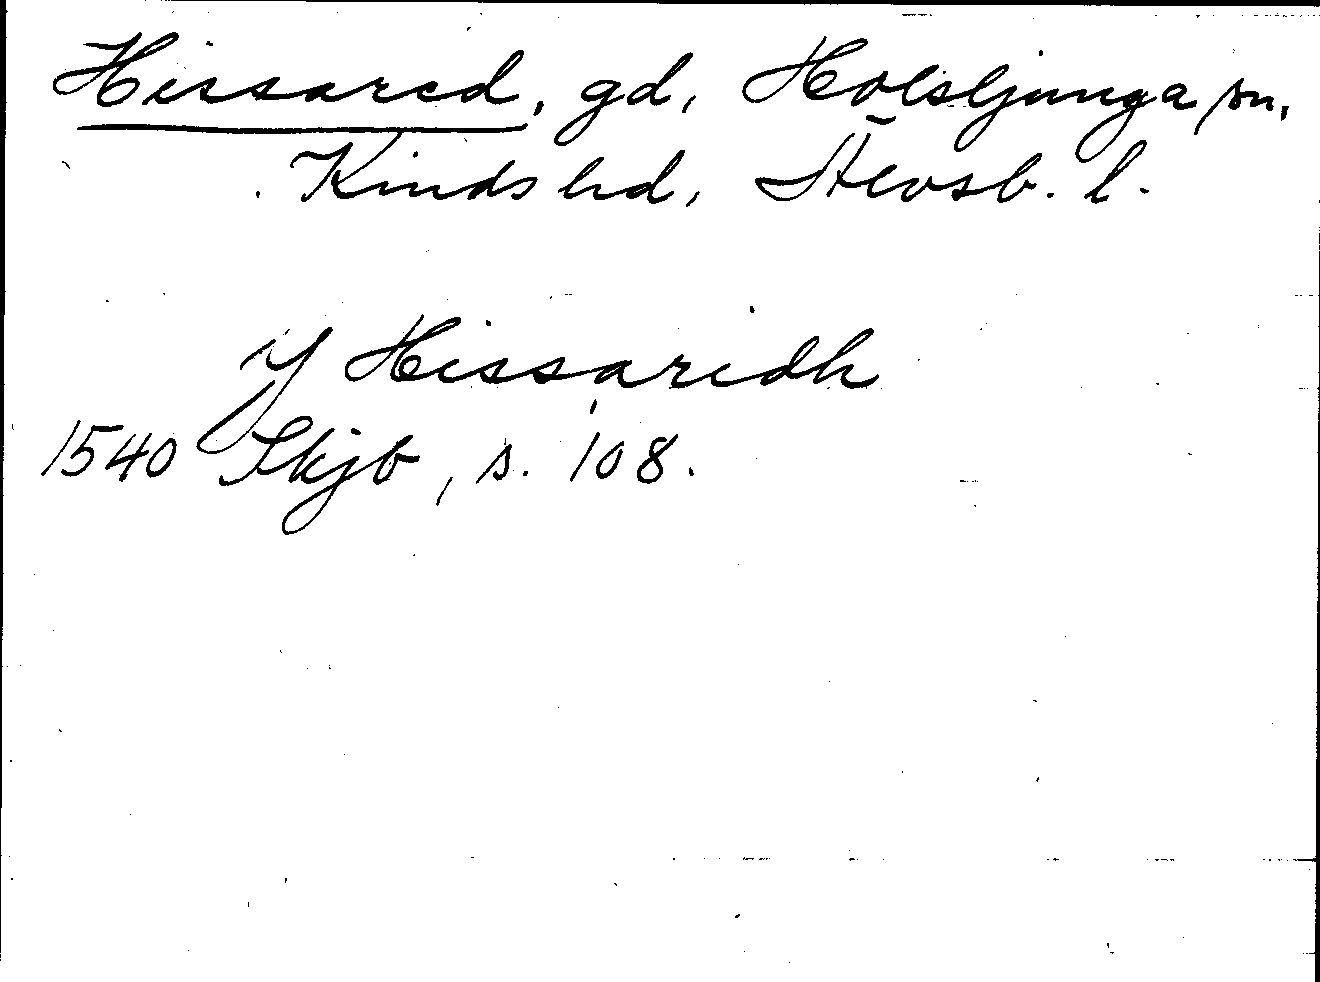 Hissared, gd, Holsljunga sn,
Kinds hd, Älvsb. l.
Y Hissaridh
1540 Skjb, s. 108.